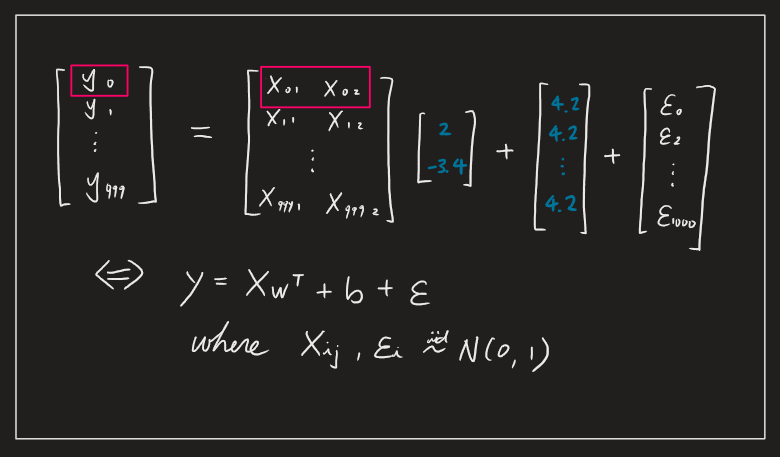 [y₀ y₁ ⋮ y₉₉₉] = [X₀₁ X₀₂ X₁₁ X₁₂ ⋮ X₉₉₉₁ X₉₉₉₂] [2 -3.4] + [4.2 4.2 ⋮ 4.2] + [ε₀ ε₂ ⋮ ε₁₀₀₀]
⇔ y = Xwᵀ + b + ε
where Xᵢⱼ, εᵢ iid ~ N(0, 1)